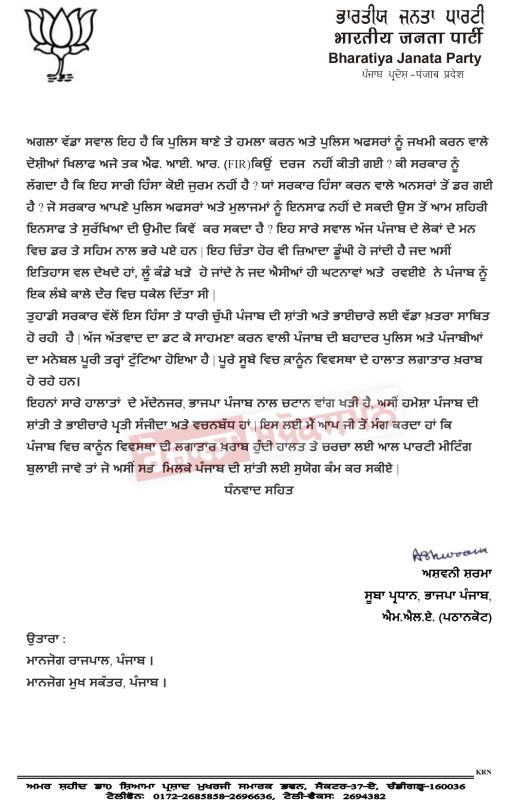 ਭਾਰਤੀਯ ਜਨਤਾ ਪਾਰਟੀ
भारतीय जनता पार्टी
Bharatiya Janata Party
ਪੰਜਾਬ ਪ੍ਰਦੇਸ਼ -पंजाब प्रदेश
ਅਗਲਾ ਵੱਡਾ ਸਵਾਲ ਇਹ ਹੈ ਕਿ ਪੁਲਿਸ ਥਾਣੇ ਤੇ ਹਮਲਾ ਕਰਨ ਅਤੇ ਪੁਲਿਸ ਅਫਸਰਾਂ ਨੂੰ ਜਖਮੀ ਕਰਨ ਵਾਲੇ
ਦੋਸ਼ੀਆਂ ਖਿਲਾਫ ਅਜੇ ਤਕ ਐਫ. ਆਈ. ਆਰ. (FIR)ਕਿਉਂ ਦਰਜ ਨਹੀਂ ਕੀਤੀ ਗਈ ? ਕੀ ਸਰਕਾਰ ਨੂੰ
ਲੱਗਦਾ ਹੈ ਕਿ ਇਹ ਸਾਰੀ ਹਿੰਸਾ ਕੋਈ ਜੁਰਮ ਨਹੀਂ ਹੈ ? ਯਾਂ ਸਰਕਾਰ ਹਿੰਸਾ ਕਰਨ ਵਾਲੇ ਅਨਸਰਾਂ ਤੋਂ ਡਰ ਗਈ
ਹੈ ? ਜੋ ਸਰਕਾਰ ਆਪਣੇ ਪੁਲਿਸ ਅਫਸਰਾਂ ਅਤੇ ਮੁਲਾਜਮਾਂ ਨੂੰ ਇਨਸਾਫ ਨਹੀਂ ਦੇ ਸਕਦੀ ਉਸ ਤੋਂ ਆਮ ਸ਼ਹਿਰੀ
ਇਨਸਾਫ ਤੇ ਸੁਰੱਖਿਆ ਦੀ ਉਮੀਦ ਕਿਵੇਂ ਕਰ ਸਕਦਾ ਹੈ ? ਇਹ ਸਾਰੇ ਸਵਾਲ ਅੱਜ ਪੰਜਾਬ ਦੇ ਲੋਕਾਂ ਦੇ ਮਨ
ਵਿਚ ਡਰ ਤੇ ਸਹਿਮ ਨਾਲ ਭਰੇ ਪਏ ਹਨ | ਇਹ ਚਿੰਤਾ ਹੋਰ ਵੀ ਜ਼ਿਆਦਾ ਡੂੰਘੀ ਹੋ ਜਾਂਦੀ ਹੈ ਜਦ ਅਸੀਂ
ਇਤਿਹਾਸ ਵਲ ਦੇਖਦੇ ਹਾਂ, ਲੂੰ ਕੰਡੇ ਖੜੇ ਹੋ ਜਾਂਦੇ ਨੇ ਜਦ ਐਸੀਆਂ ਹੀ ਘਟਨਾਵਾਂ ਅਤੇ ਰਵਈਏ ਨੇ ਪੰਜਾਬ ਨੂੰ
ਇਕ ਲੰਬੇ ਕਾਲੇ ਦੌਰ ਵਿਚ ਧਕੇਲ ਦਿੱਤਾ ਸੀ |
ਤੁਹਾਡੀ ਸਰਕਾਰ ਵੱਲੋਂ ਇਸ ਹਿੰਸਾ ਤੇ ਧਾਰੀ ਚੁੱਪੀ ਪੰਜਾਬ ਦੀ ਸ਼ਾਂਤੀ ਅਤੇ ਭਾਈਚਾਰੇ ਲਈ ਵੱਡਾ ਖ਼ਤਰਾ ਸਾਬਿਤ
ਹੋ ਰਹੀ ਹੈ | ਅੱਜ ਅੱਤਵਾਦ ਦਾ ਡਟ ਕੇ ਸਾਹਮਣਾ ਕਰਨ ਵਾਲੀ ਪੰਜਾਬ ਦੀ ਬਹਾਦਰ ਪੁਲਿਸ ਅਤੇ ਪੰਜਾਬੀਆਂ
ਦਾ ਮਨੋਬਲ ਪੂਰੀ ਤਰ੍ਹਾਂ ਟੁੱਟਿਆ ਹੋਇਆ ਹੈ | ਪੂਰੇ ਸੂਬੇ ਵਿਚ ਕ਼ਾਨੂੰਨ ਵਿਵਸਥਾ ਦੇ ਹਾਲਾਤ ਲਗਾਤਾਰ ਖ਼ਰਾਬ
ਹੋ ਰਹੇ ਹਨ।
ਇਹਨਾਂ ਸਾਰੇ ਹਾਲਾਤਾਂ ਦੇ ਮੱਦੇਨਜਰ, ਭਾਜਪਾ ਪੰਜਾਬ ਨਾਲ ਚਟਾਨ ਵਾਂਗ ਖੜੀ ਹੈ, ਅਸੀਂ ਹਮੇਸ਼ਾ ਪੰਜਾਬ ਦੀ
ਸ਼ਾਂਤੀ ਤੇ ਭਾਈਚਾਰੇ ਪ੍ਰਤੀ ਸੰਜੀਦਾ ਅਤੇ ਵਚਨਬੱਧ ਹਾਂ |ਇਸ ਲਈ ਮੈਂ ਆਪ ਜੀ ਤੋਂ ਮੰਗ ਕਰਦਾ ਹਾਂ ਕਿ
ਪੰਜਾਬ ਵਿਚ ਕਾਨੂੰਨ ਵਿਵਸਥਾ ਦੀ ਲਗਾਤਾਰ ਖ਼ਰਾਬ ਹੁੰਦੀ ਹਾਲਤ ਤੇ ਚਰਚਾ ਲਈ ਆਲ ਪਾਰਟੀ ਮੀਟਿੰਗ
ਬੁਲਾਈ ਜਾਵੇ ਤਾਂ ਜੋ ਅਸੀਂ ਸਭ ਮਿਲਕੇ ਪੰਜਾਬ ਦੀ ਸ਼ਾਂਤੀ ਲਈ ਸੁਯੋਗ ਕੰਮ ਕਰ ਸਕੀਏ |
ਧੰਨਵਾਦ ਸਹਿਤ
Ashwani
ਅਸ਼ਵਨੀ ਸ਼ਰਮਾ
ਸੂਬਾ ਪ੍ਰਧਾਨ, ਭਾਜਪਾ ਪੰਜਾਬ,
ਐਮ.ਐਲ.ਏ. (ਪਠਾਨਕੋਟ)
ਉਤਾਰਾ :
ਮਾਨਜੋਗ ਰਾਜਪਾਲ, ਪੰਜਾਬ ।
ਮਾਨਜੋਗ ਮੁਖ ਸਕੱਤਰ, ਪੰਜਾਬ ।
KRN
ਅਮਰ ਸ਼ਹੀਦ ਡਾ0 ਸ਼ਿਆਮਾ ਪ੍ਰਸ਼ਾਦ ਮੁਖਰਜੀ ਸਮਾਰਕ ਭਵਨ, ਸੈਕਟਰ-37-ਏ, ਚੰਡੀਗੜ੍ਹ-160036
ਟੈਲੀਫੋਨ: 0172-2685858-2696636, ਟੈਲੀ-ਫੈਕਸ: 2694382